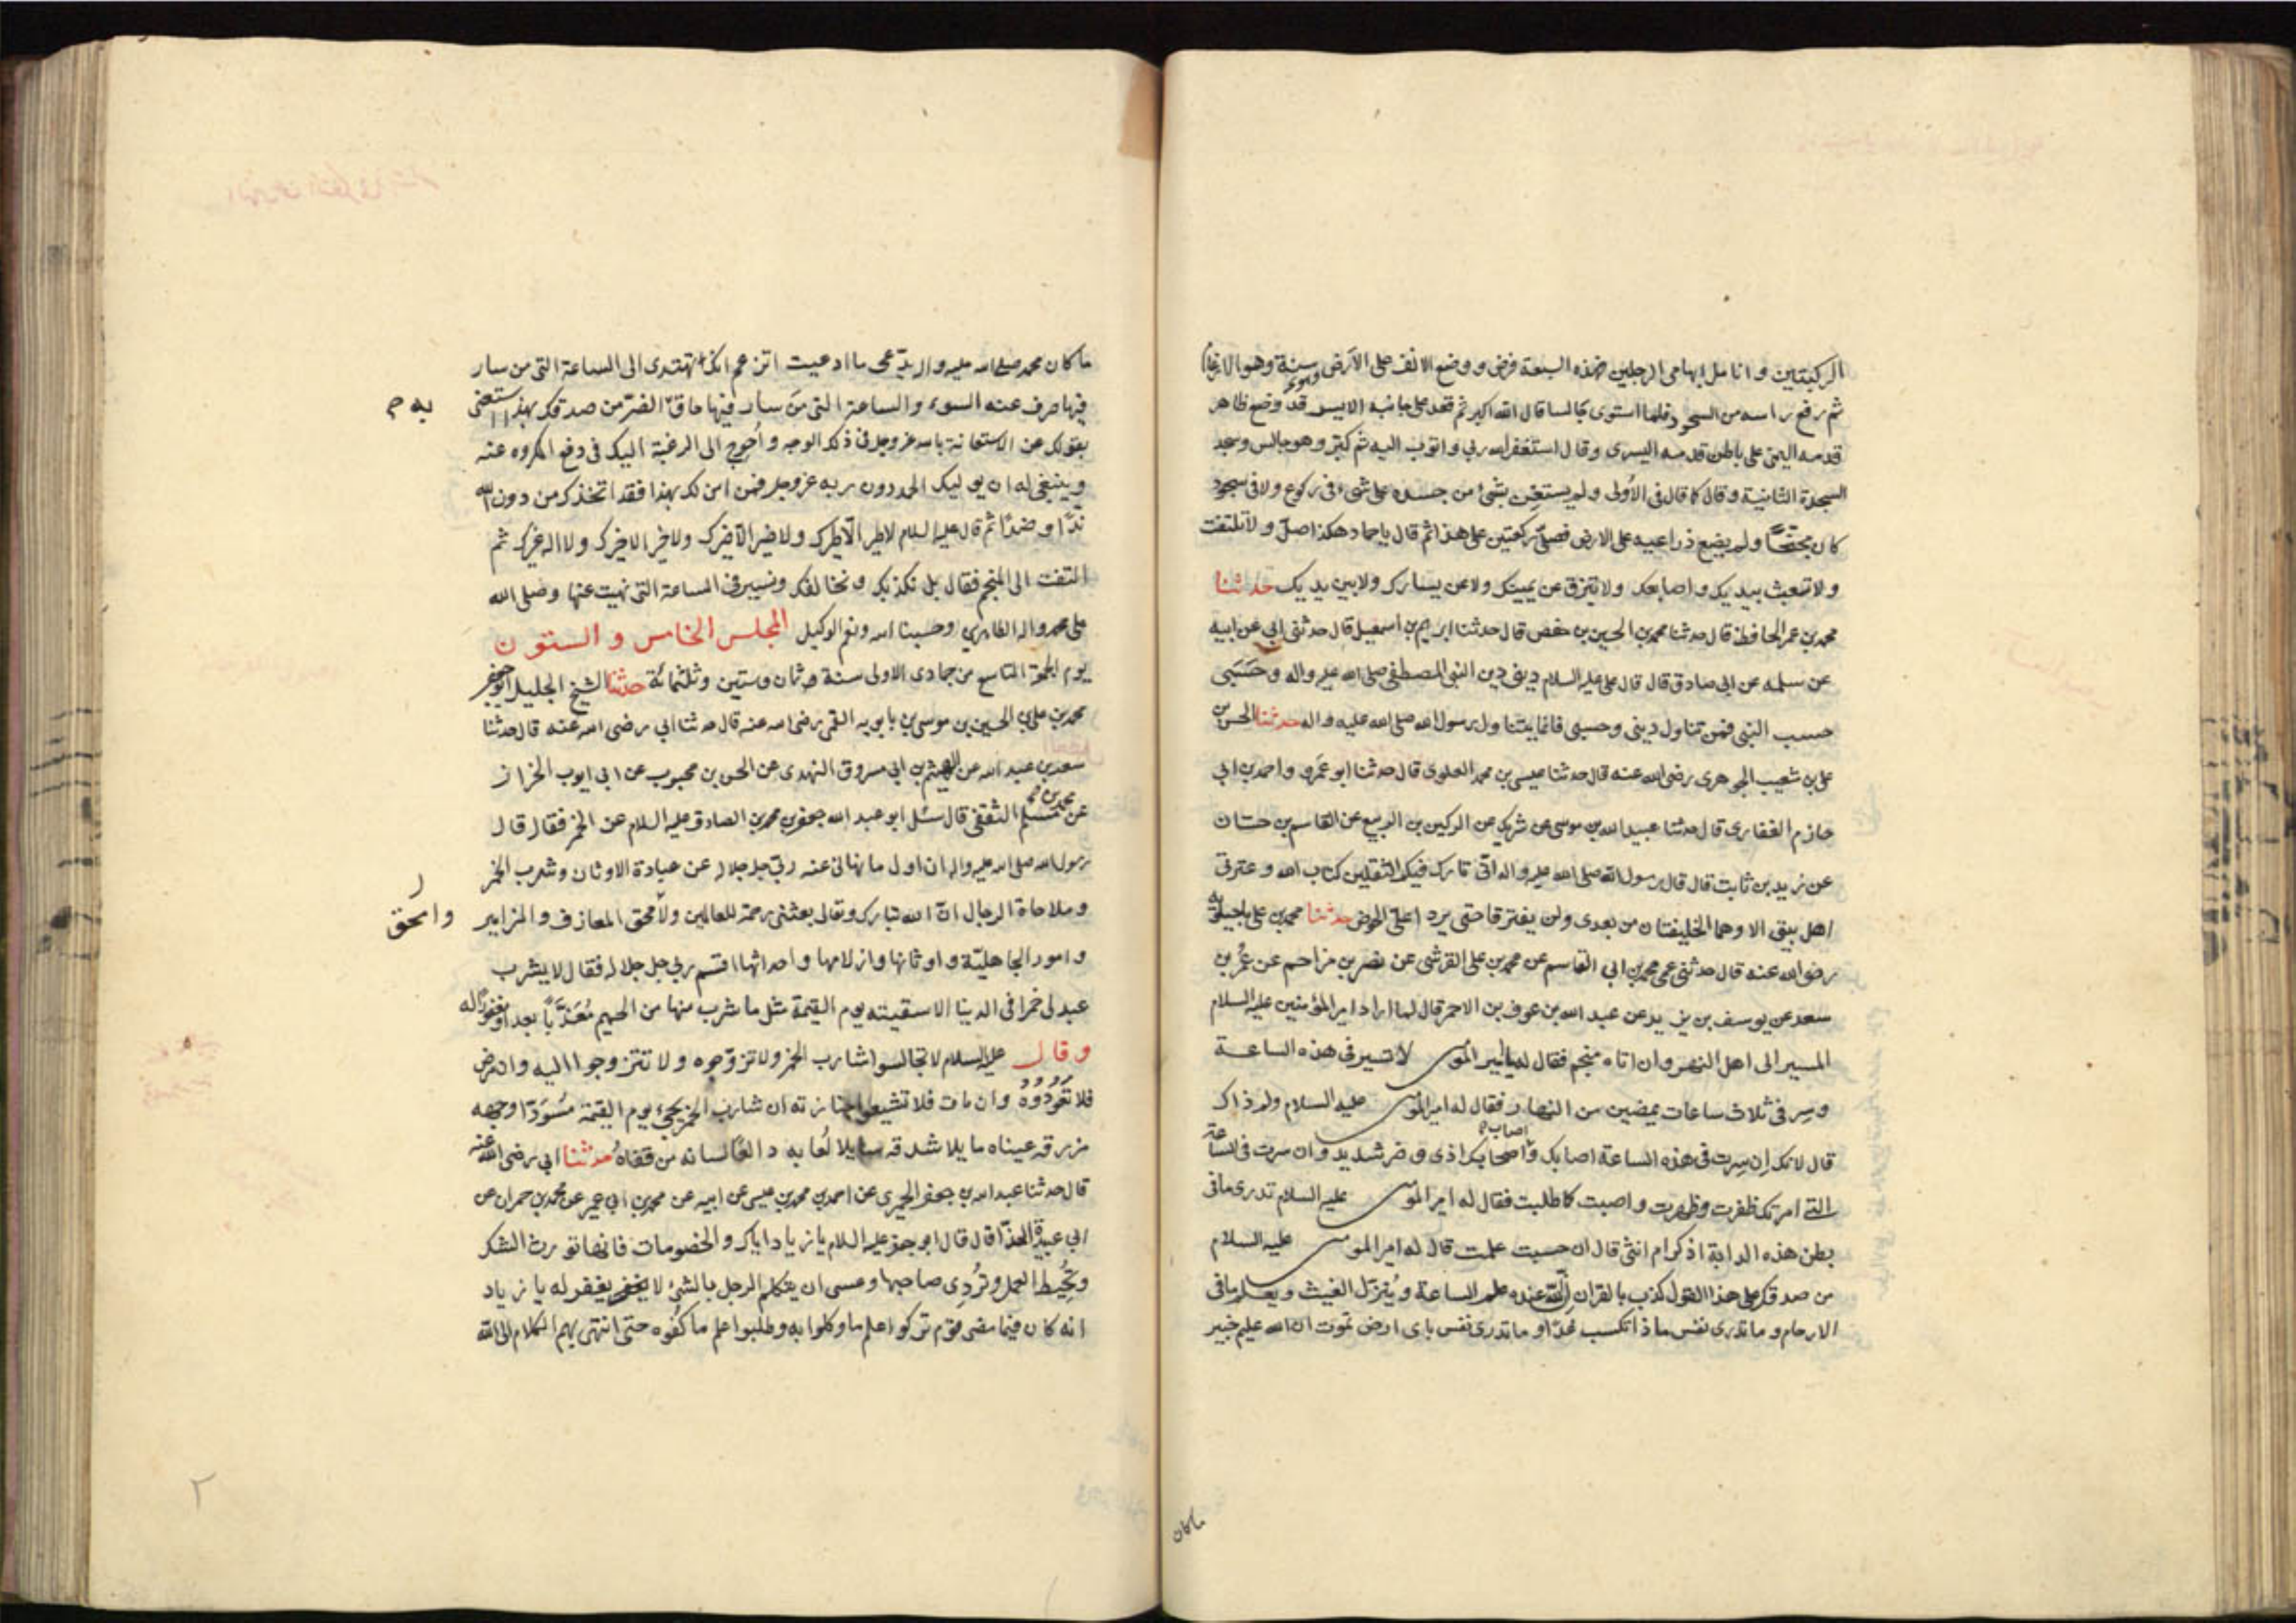 الركبتين وانامل ابهامى الرجلين فهذه السبعة فرض ووضع الانف على الأرض سنة وهو الارغام
ثم رفع راسه من السجود فلما استوى جالسا قال الله اكبر ثم قعد على جانبه الايسر قد وضع ظاهر
قدمه اليمنى على باطن قدمه اليسرى وقال استغفر الله ربي واتوب اليه ثم كبّر وهو جالس وسجد
السجدة الثانية وقال كما قال فى الأولى ولم يستعن بشئ من جسده على شئ فى ركوع ولا فى سجود
كان مجنّحًا ولم يضع ذراعيه على الارض فصلّى ركعتين على هذا ثم قال يا حماد هكذا صلّ ولا تلتفت
ولا تعبث بيديك واصابعك ولا تبزق عن يمينك ولا عن يسارك ولا بين يديك حدثنا
محمد بن عمر الحافظ قال حدثنا محمد بن الحسين بن حفص قال حدثنا ابرهيم بن اسمعيل قال حدثنى ابي عن ابيه
عن سلمه عن ابى صادق قال قال على عليه السلام دينى دين النبى المصطفى صلى الله عليه واله وحَسَبى
حسب النبى فمن تناول دينى وحسبى فانما يتناول رسول الله صلى الله عليه واله حدثنا الحسن بن
على بن شعيب الجوهرى رضى الله عنه قال حدثنا عيسى بن محمد العلوى قال حدثنا ابو عَمرو واحمد بن ابى
حازم الغفارى قال حدثنا عبيد الله بن موسى عن شريك عن الركين بن الربيع عن القاسم بن حسّان
عن زيد بن ثابت قال قال رسول الله صلى الله عليه واله انّى تارك فيكم الثقلين كتاب الله وعترتى
اهل بيتى الا وهما الخليفتان من بعدى ولن يفترقا حتى يردا علىّ الحوض حدثنا محمد بن على ماجيلويه
رضى الله عنه قال حدثنى عمى محمد بن ابى القاسم عن محمد بن على القرشى عن نصر بن مزاحم عن عُمر بن
سعد عن يوسف بن يزيد عن عبد الله بن عوف بن الاحمر قال لما اراد امير المؤمنين عليه السلام
المسير الى اهل النهروان اتاه منجم فقال له يا امير المومنين لا تسير فى هذه الساعة
وسِر فى ثلاث ساعات يمضين من النهار فقال له امير المومنين عليه السلام ولم ذاك
قال لانك اِن سِرت فى هذه الساعة اصابك واصاب اصحابك اذى وضر شديد وان سرت فى الساعة
التى امرتك ظفرت وظهرت واصبت كلما طلبت فقال له امير المومنين عليه السلام تدرى ما فى
بطن هذه الدابة اذكر ام انثى قال ان حسبت علمت قال له امير المومنين عليه السلام
من صدقك على هذا القول كذب بالقران اِنّ الله عنده علم الساعة ويُنزّل الغيث ويعلم ما فى
الارحام وما تدرى نفس ماذا تكسب غدًا وما تدرى نفس باى ارض تموت ان الله عليم خبير
ماكان
ما كان محمد صلى الله عليه واله يدّعى ما ادعيت اتزعم انك تهتدى الى الساعة التى من سار
فيها صرف عنه السوء والساعة التى مَن سار فيها حاق به الضرّ من صدقك بهذا استغنى
بقولك عن الاستعانة بالله عز وجل فى ذلك الوجه وأحوج الى الرغبة اليك فى دفع المكروه عنه
وينبغى له ان يوليك الحمد دون ربه عز وجل فمن امن لك بهذا فقد اتخذك من دون الله
ندًّا او ضدًّا ثم قال عليه السلام لا طير الّا طيرك ولا ضير الّا ضيرك ولا خير الا خيرك ولا اله غيرك ثم
التفت الى المنجم فقال بل نكذبك ونخالفك ونسير فى الساعة التى نهيت عنها وصلى الله
على محمد واله الطاهرين وحسبنا الله ونعم الوكيل المجلس الخامس والستون
يوم الجمعة التاسع من جمادى الاولى سنة ثمان وستين وثلثمائة حدثنا الشيخ الجليل ابو جعفر
محمد بن على بن الحسين بن موسى بن بابويه القمى رضى الله عنه قال حدثنا ابي رضى الله عنه قال حدثنا
سعد بن عبد الله عن الهيثم بن ابى مسروق النهدى عن الحسن بن محبوب عن ابى ايوب الخزاز
عن محمد بن مسلم الثقفى قال سئل ابو عبد الله جعفر بن محمد الصادق عليه السلام عن الخمر فقال قال
رسول الله صلى الله عليه واله ان اول ما نهانى عنه ربّى جل جلاله عن عبادة الاوثان وشرب الخمر
وملاحاة الرجال انّ الله تبارك وتعالى بعثنى رحمة للعالمين ولأمحق المعازف والمزامير
وامور الجاهليّة واوثانها وازلامها واحداثها اقسم ربى جل جلاله فقال لا يشرب
عبد لى خمرا فى الدينا الا سقيته يوم القيمة مثل ما شرب منها من الحميم مُعَذّباً بعد او مغفورًا له
وقال عليه السلام لا تجالسوا شارب الخمر ولا تزوّجوه ولا تتزوجوا اليه وان مرض
فلا تعودوه وان مات فلا تشيعوا جنازته ان شارب الخمر يجئ يوم القيمة مُسْوَدّا وجهه
مزرقه عيناه مايلا شدقه سايلا لُعابه دالعًا لسانه من قفاه حدثنا ابى رضى الله عنه
قال حدثنا عبد الله بن جعفر الحميرى عن احمد بن محمد بن عيسى عن ابيه عن محمد بن ابى عمير عن محمد بن حمران عن
ابى عبيدة الحذّا قال قال ابو جعفر عليه السلام يا زياد اياك والخصومات فانها تورث الشك
وتُحبِط العمل وتُردِى صاحبها وعسى ان يتكلم الرجل بالشئ لا يغفر له يا زياد
انه كان فيما مضى قوم تركوا علم ما وكلوا به وطلبوا علم ما كُفُوه حتى انتهى بهم الكلام الى الله
به م
وامحق
٢